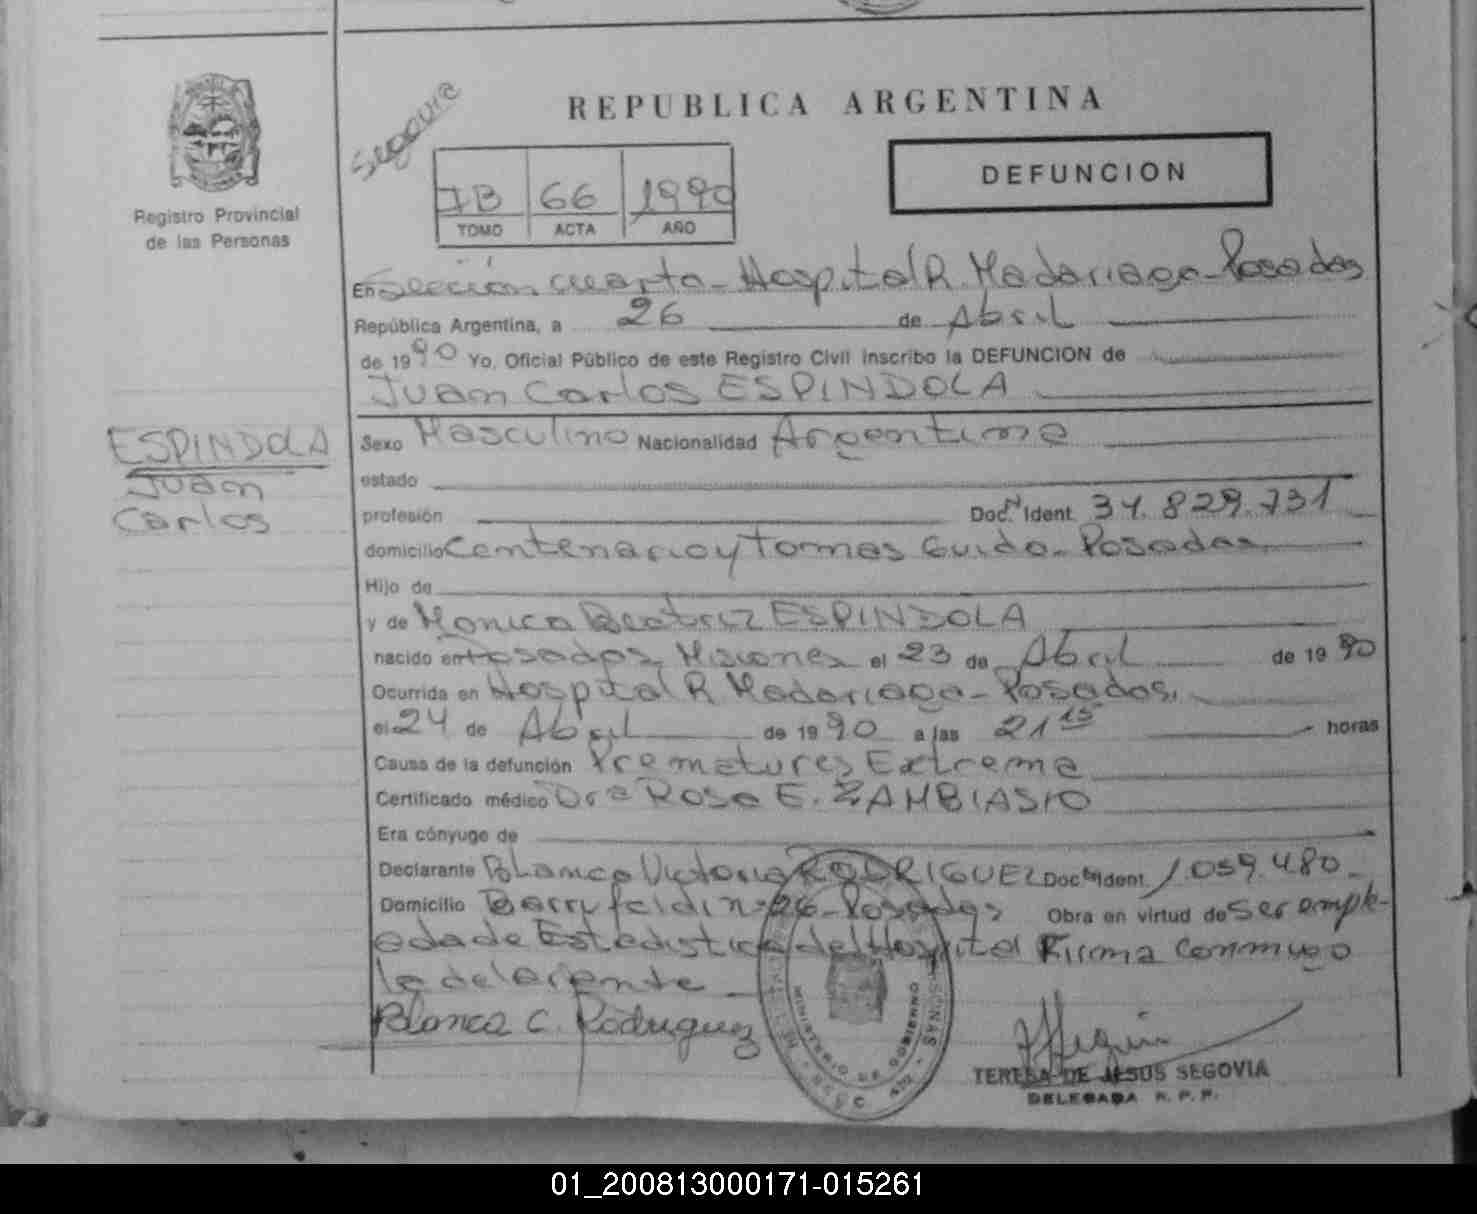 REPUBLICA ARGENTINA
Registro Provincial
de las Personas
DEFUNCION
1B 66 1990
TOMO ACTA AÑO
En Sección cuarta - Hospital R. Madariaga - Posadas
República Argentina, a 26 de Abril
de 1990 Yo, Oficial Público de este Registro Civil inscribo la DEFUNCION de
Juan Carlos ESPINDOLA
ESPINDOLA
Juan
Carlos
Sexo Masculino Nacionalidad Argentina
estado
profesión Doc. Nº Ident. 34.829.731
domicilio Centenario y Tomas Guido - Posadas
Hijo de
y de Monica Beatriz ESPINDOLA
nacido en Posadas, Misiones el 23 de Abril de 1990
Ocurrida en Hospital R Madariaga - Posadas,
el 24 de Abril de 1990 a las 21 15 horas
Causa de la defunción Prematurez Extrema
Certificado médico Dra Rosa E. ZAMBIASIO
Era cónyuge de
Declarante Blanca Victoria RODRIGUEZ Doc. Ident. 1.059.480
Domicilio nº 26 - Posadas Obra en virtud de ser emple-
ada de Estadistica del Hospital Firma conmigo
la delarente
Blanca C. Rodriguez
MINISTERIO DE GOBIERNO
TERESA DE JESUS SEGOVIA
DELEGADA R. P. P.
01_200813000171-015261